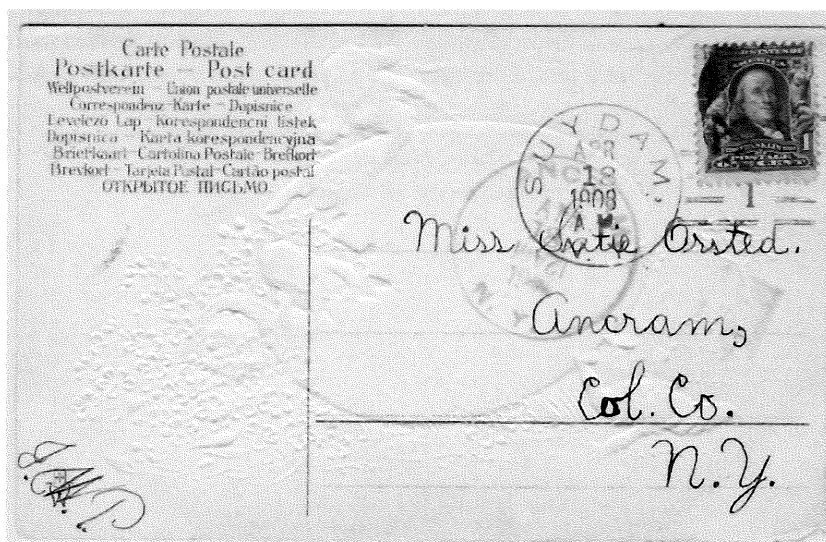 Carte Postale
Postkarte — Post card
Weltpostverein - Union postale universelle
Correspondenz-Karte - Dopisnice
Levelezo Lap - Korespondencni listek
Dopisnica - Karta korespondencyjna
Briefkaart - Cartolina Postale - Brefkort
Brevkort - Tarjeta Postal - Cartão postal
ОТКРЫТОЕ ПИСЬМО.
SUYDAM.
APR
18
1908
A M
N.Y.
1
Miss Orsted.
Ancram,
Col. Co.
N.Y.